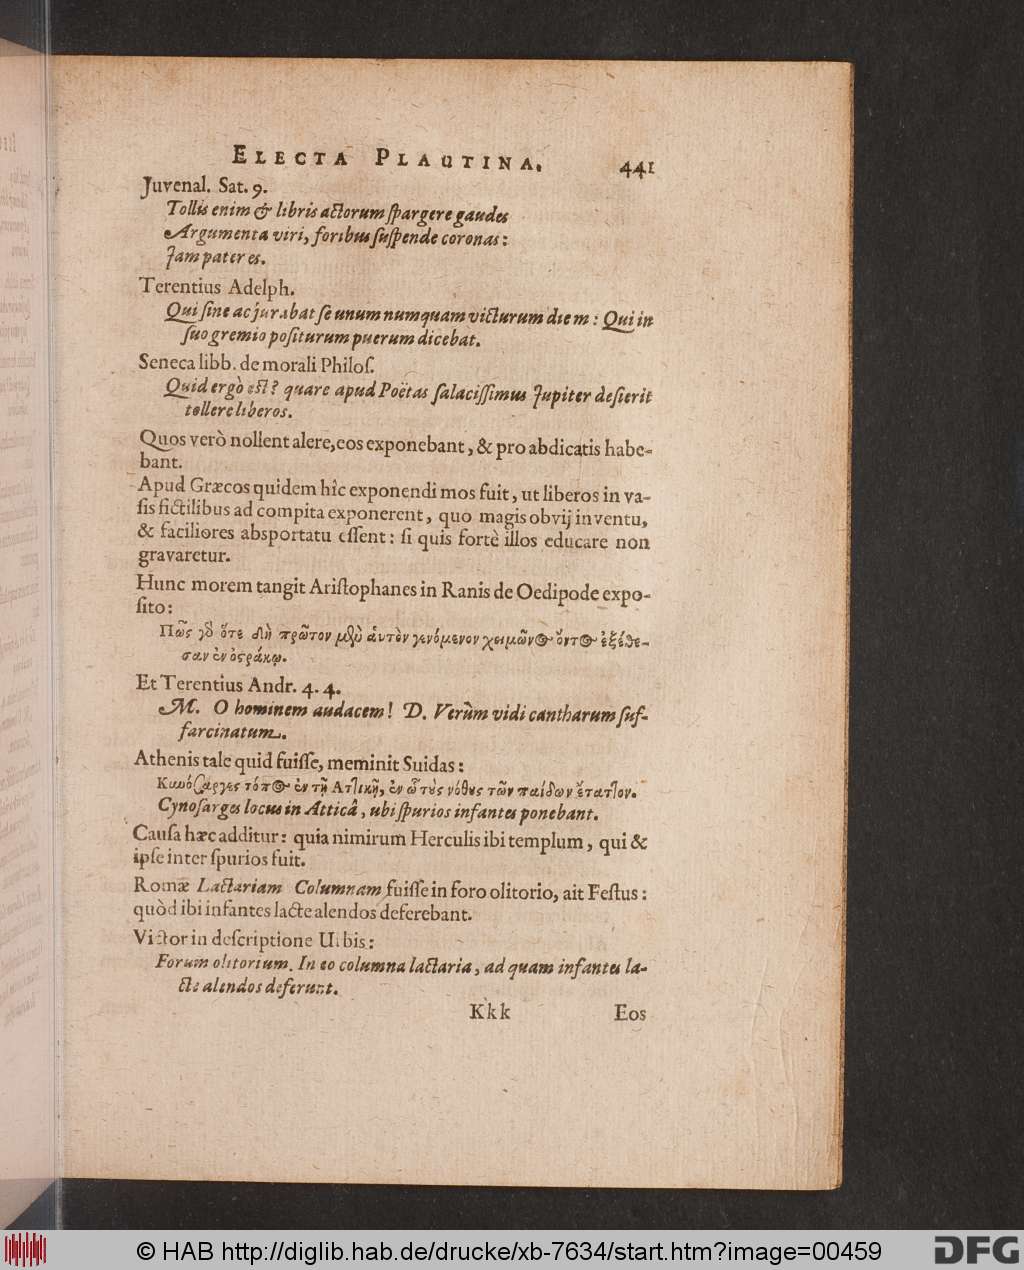 ELECTA PLAUTINA. 441
Juvenal. Sat. 9.
Tollis enim & libris actorum spargere gaudes
Argumenta viri, foribus suspende coronas:
Jam pater es.
Terentius Adelph.
Qui sine ac jurabat se unum numquam victurum diem: Qui in
suo gremio positurum puerum dicebat.
Seneca libb. de morali Philos.
Quid ergò est? quare apud Poëtas salacissimus Jupiter desierit
tollere liberos.
Quos verò nollent alere, eos exponebant, & pro abdicatis habe-
bant.
Apud Græcos quidem hîc exponendi mos fuit, ut liberos in va-
sis fictilibus ad compita exponerent, quo magis obvij inventu,
& faciliores absportatu essent: si quis fortè illos educare non
gravaretur.
Hunc morem tangit Aristophanes in Ranis de Oedipode expo-
sito:
Πῶς γὸ ὅτε δὴ πρῶτον μὲν ἀυτὸν γενόμενον χειμῶνος ὄντος ἐξέθε-
σαν ἐν ὀςράκῳ.
Et Terentius Andr. 4. 4.
M. O hominem audacem! D. Verùm vidi cantharum suf-
farcinatum.
Athenis tale quid fuisse, meminit Suidas:
Κυνόσαργες τόπος ἐν τῇ Ατλικῇ, ἐν ᾧ τοὺς νόθους τῶν παίδων ἔτατλον.
Cynosarges locus in Atticâ, ubi spurios infantes ponebant.
Causa hæc additur: quia nimirum Herculis ibi templum, qui &
ipse inter spurios fuit.
Romæ Lactariam Columnam fuisse in foro olitorio, ait Festus:
quòd ibi infantes lacte alendos deferebant.
Victor in descriptione Urbis:
Forum olitorium. In eo columna lactaria, ad quam infantes la-
cte alendos deferunt.
Kkk Eos
© HAB http://diglib.hab.de/drucke/xb-7634/start.htm?image=00459
DFG